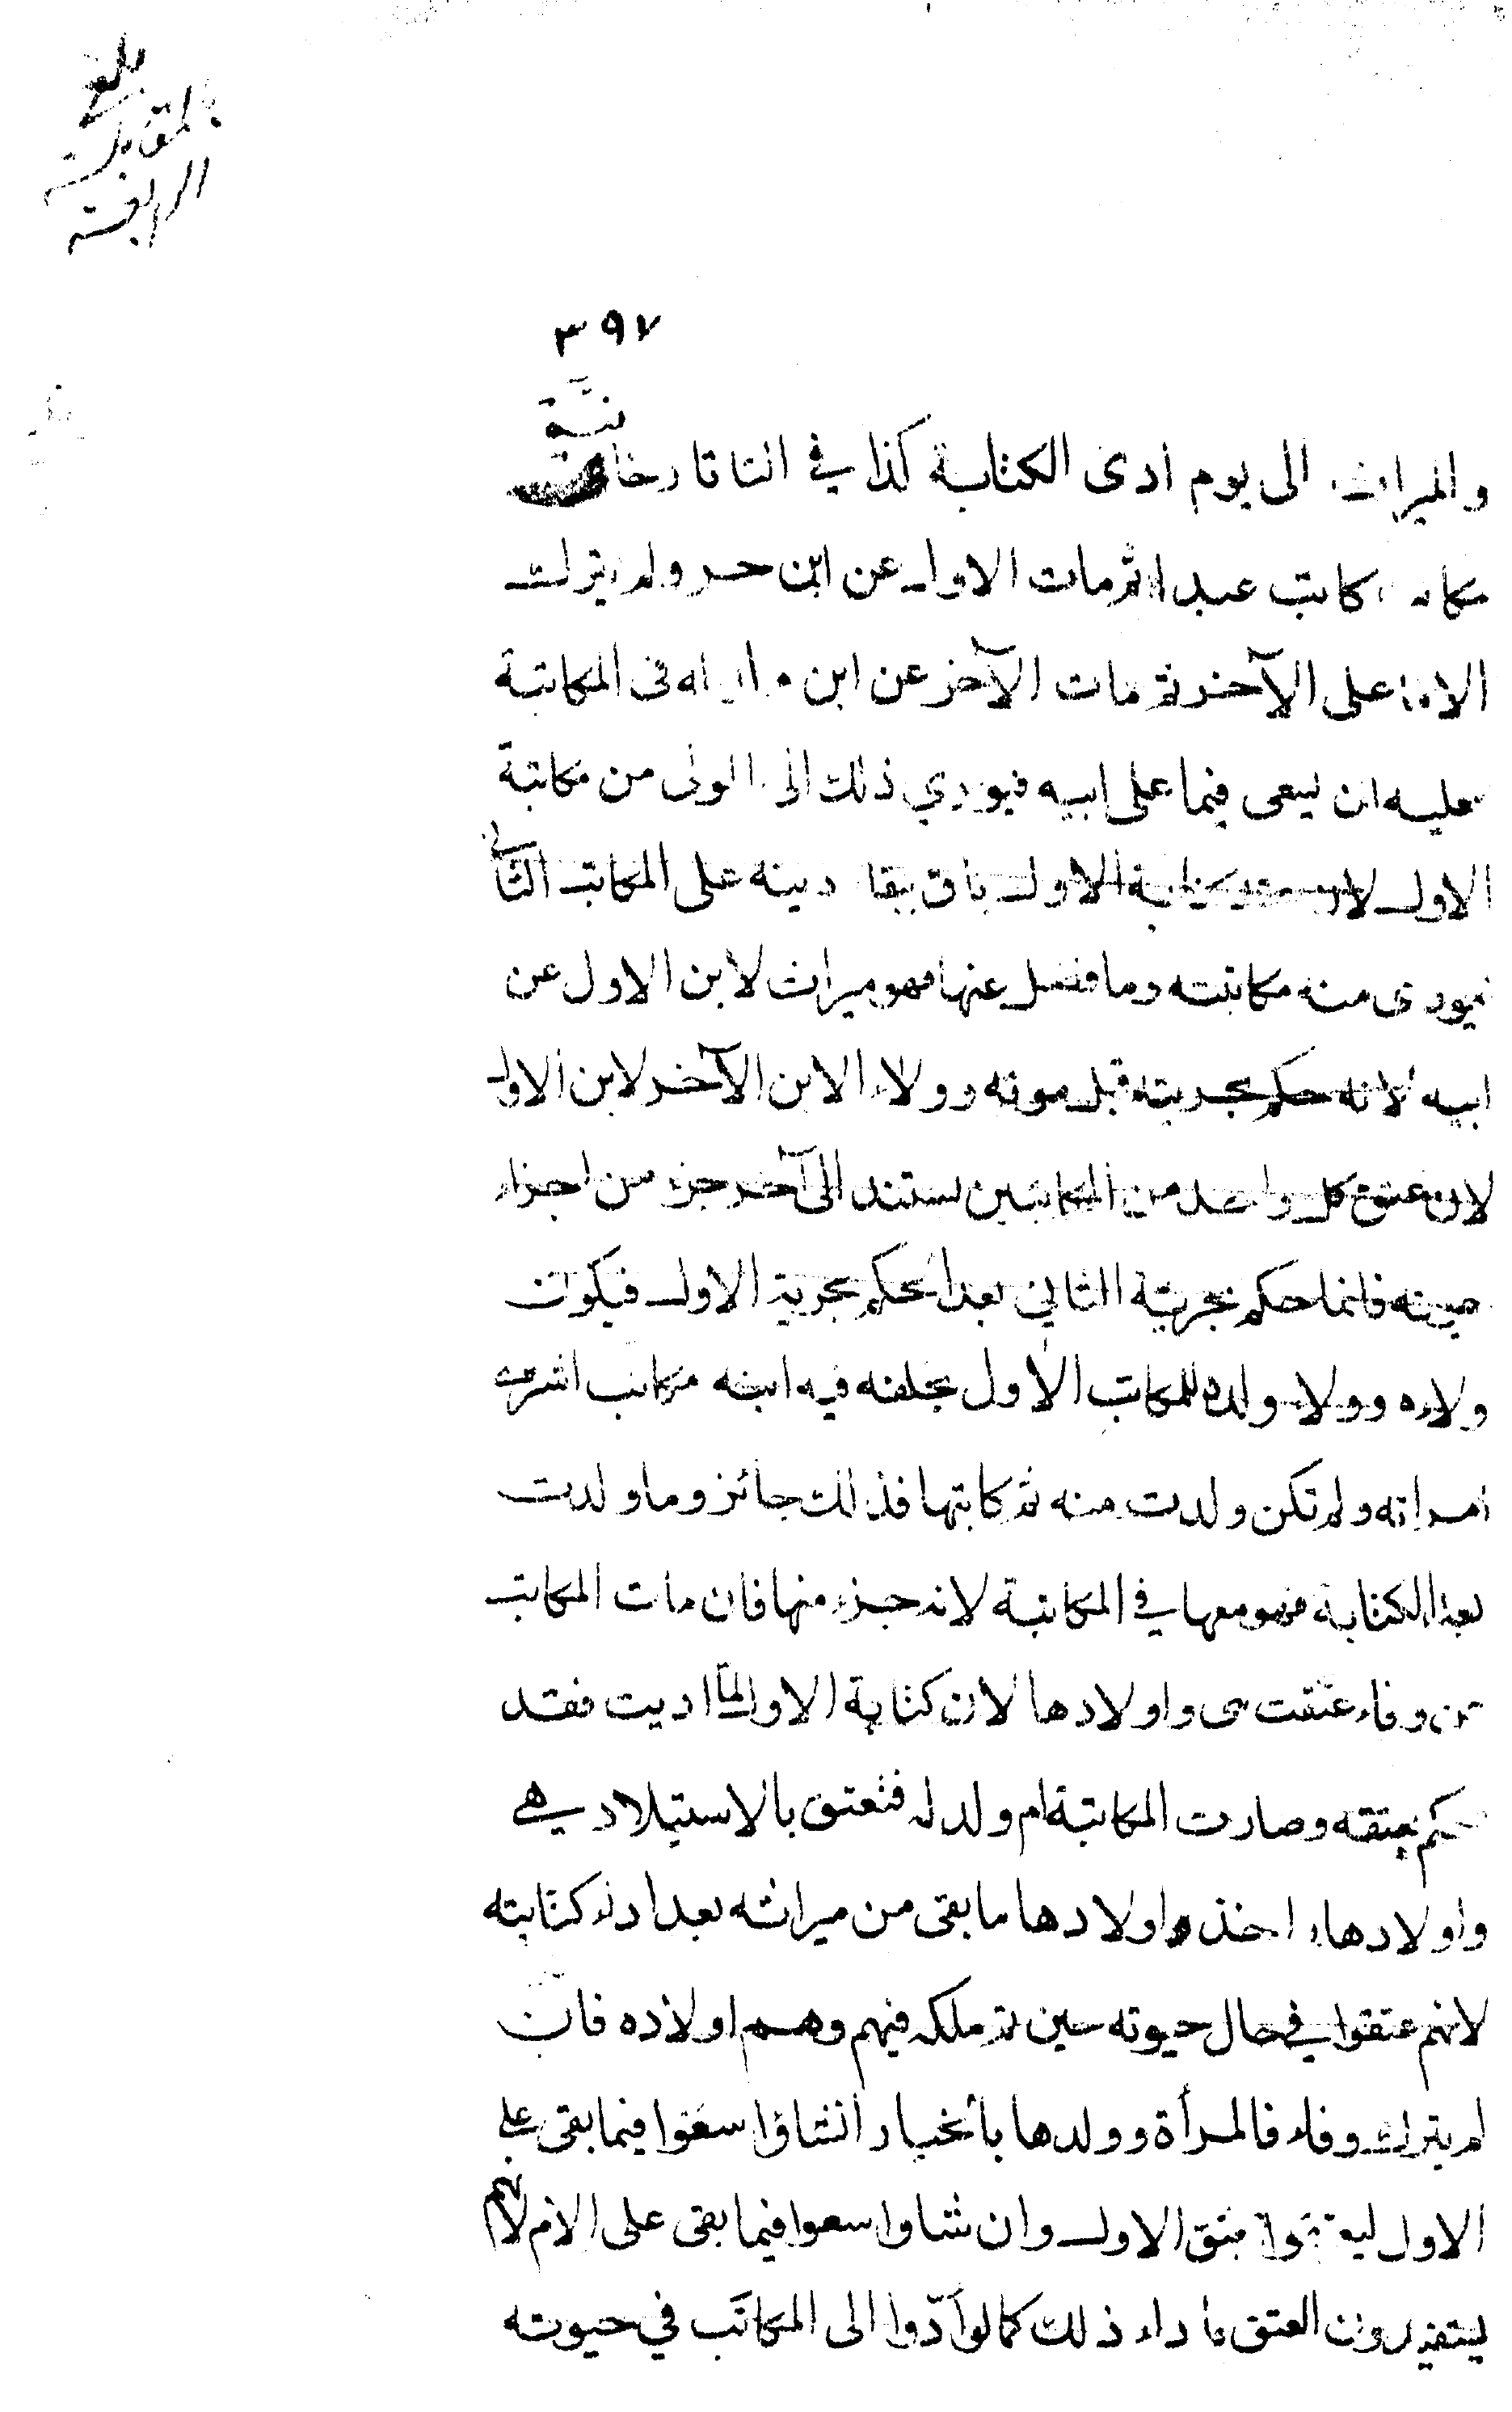 بلغ
بالمقابلة
الرابعة
٣٩٧
والميراث الى يوم ادى الكتابة كذا في التاتارخانية
مكاتب كاتب عبدا ثم مات الاول عن ابن حر ولم يترك
الا ما على الآخر ثم مات الآخر عن ابن ولد له فى المكاتبة
فعليه ان يسعى فيما على ابيه فيودي ذلك الى المولى من مكاتبة
الاول لان عقد كتابة الاول باق ببقاء دينه على المكاتب الثانى
فيودى منه مكاتبته وما فضل عنها فهو ميراث لابن الاول عن
ابيه لانه حكم بحريته قبل موته وولاء الابن الآخر لابن الاول
لان عتق كل واحد من المكاتبين يستند الى آخر جزء من اجزاء
حيوته فانما حكم بحرية الثاني بعد الحكم بحرية الاول فيكون
ولاءه وولاء ولده للمكاتب الاول يخلفه فيه ابنه مكاتب اشترى
امراته ولم تكن ولدت منه ثم كاتبها فذلك جائز وما ولدت
بعد الكتابة فهو معها في المكاتبة لانه جزء منها فان مات المكاتب
عن وفاء عتقت هى واولادها لان كتابة الاول لما اديت فقد
حكم بعتقه وصارت المكاتبة ام ولد له فتعتق بالاستيلاد هي
واولادها واخذ اولادها ما بقى من ميراثه بعد اداء كتابته
لانهم عتقوا في حال حيوته حين تم ملكه فيهم وهم اولاده فان
لم يترك وفاء فالمرأة وولدها بالخيار ان شاؤا سعوا فيما بقى على
الاول ليعتقوا بعتق الاول وان شاوا سعوا فيما بقى على الام لانهم
يستفيدون العتق باداء ذلك كما لو ادّوا الى المكاتَب في حيوته